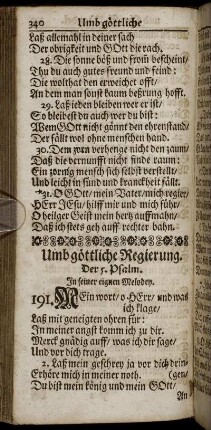 340 Umb göttliche
Laß allemahl in deiner sach
Der obrigkeit und GOtt die rach.
28. Die sonne böß und from̃ bescheint/
Thu du auch gutes freund und feind:
Die wolthat den erweichet offt/
An dem man sonst kaum beßrung hofft.
29. Laß jeden bleiben wer er ist/
So bleibest du auch wer du bist:
Wem Gott nicht gönnt den ehrenstand/
Der fällt wol ohne menschen hand.
30. Dem zorn verhenge nicht den zaum/
Daß die vernunfft nicht finde raum:
Ein zornig mensch sich selbst verstellt/
Und leicht in sünd und kranckheit fällt.
31. O GOtt/ mein Vater/ mich regier/
HErr JEsu/ hilff mir und mich führ/
O heilger Geist mein hertz auffmahn/
Daß ich stets geh auff rechter bahn.
Umb göttliche Regierung.
Der 5. Psalm.
In seiner eignen Melodey.
191. Mein wort/ o HErr/ und was
ich klage/
Laß mit geneigten ohren für:
In meiner angst komm ich zu dir.
Merck gnädig auff/ was ich dir sage/
Und vor dich trage.
2. Laß mein geschrey ja vor dich
Erhöre mich in meiner noth. (gen/
Du bist mein könig und mein GOtt/
An